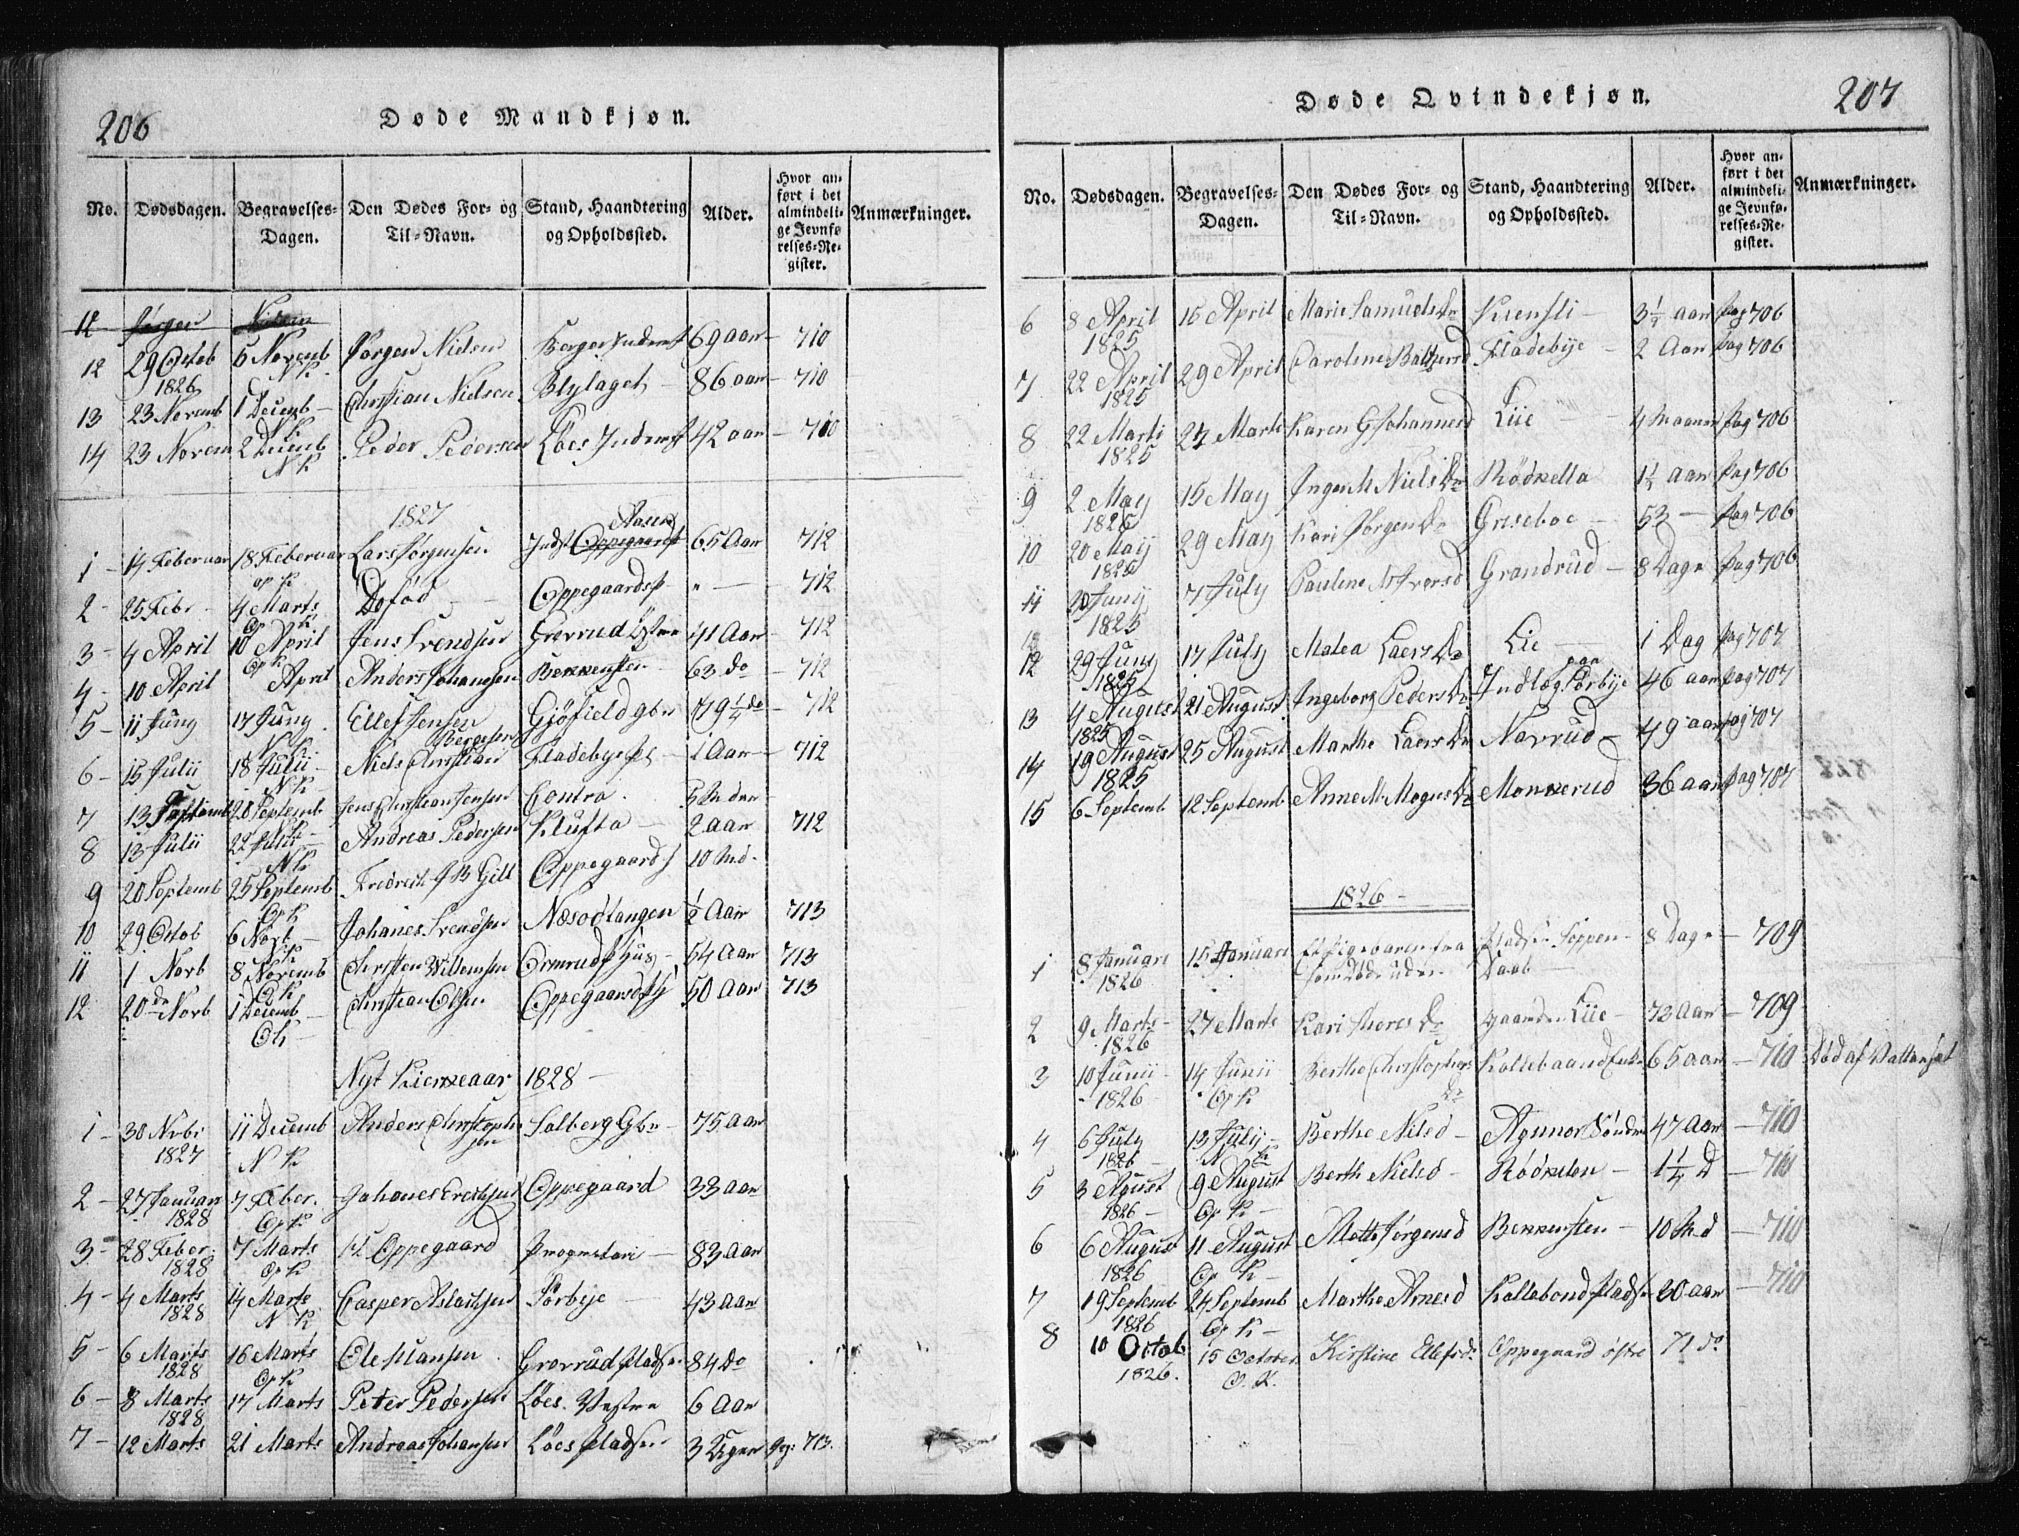 206
Døde Mandkjøn.
No. Dødsdagen. Begravelses-Dagen. Den Dødes For- og Til-Navn. Stand, Haandtering og Opholdssted. Alder. Hvor anført i det almindelige Jevnførelses-Register. Anmærkninger.
12 Jørgen Nielsen
12 29 Octob 1826 5 Novemb N K. Jørgen Nielsen 69 aar 710
13 23 Novemb 1 Decemb N K Christian Nielsen Blylaget 86 aar 710
14 23 Novem 2 Decemb N K Peder Pedersen Løes 42 aar 710
1827
1 14 Februar 18 Februar op K Lars Jørgensen Indst Oppegaard Aasen 65 Aar 712
2 25 Febr 4 Marts Op K Døfød Oppegaards " 712
3 4 April 10 April Op K Jens Svendsen Grevrud Østre 41 Aar 712
4 10 April April Anders Johansen Bekkensten 63 do 712
5 11 Juny 17 Juny Ellef Jensen Gjøfield gbr 79 1/4 do 712
6 15 Julii 18 Julii N K Niels Christian Bergesen Fladebye 1 Aar 712
7 13 Septemb 20 Septemb Jens Christian Jensen Contra 5 Mdr
8 13 Julii 22 Julii N K Andreas Pedersen Klufta 2 aar 712
9 20 Septemb 25 Septemb Op K Oppegaard 10 Md.
10 29 Octob 6 Novb K Johanes Svendsen Næsodtangen 1/2 Aar 713
11 1 Novb 8 Novemb O K Christen Willemsen Ormrud Hus 54 Aar 713
12 20de Novb 1 Decemb O K Christian Olsen Oppegaard 50 Aar 713
Nyt Kierkeaar 1828
1 30 Nvbr 1827 11 Decemb N K Anders Christophersen Solberg Gbr 75 Aar
2 27 Januari 1828 7 Feber. Op K Johanes Erichsen Oppegaard 33 aar
3 28 Feber 1828 7 Marts Op K Oppegaard 83 Aar
4 4 Marts 1828 14 Marts N K Casper Aslachsen Sørbye 43 Aar
5 6 Marts 1828 16 Marts Op K Ole Hansen Grevrud pladsen 84 Do
6 8 Marts 1828 17 Marts Peter Pedersen Løes Vestre 6 Aar
7 12 Marts 21 Marts Andreas Johansen Løes pladsen 3 Uger pag: 713.
207
Døde Qvindekjøn.
No. Dødsdagen. Begravelses-Dagen. Den Dødes For- og Til-Navn. Stand, Haandtering og Opholdssted. Alder. Hvor anført i det almindelige Jevnførelses-Register. Anmærkninger.
6 8 April 1825 15 April Marie Samuels Dr 3 1/4 aar pag 706
7 22 April 1825 29 April Carolene Baltzersd Fladebye 2 Aar pag 706
8 22 Marti 1825 27 Marti Karen G Johannesd Liie 4 Maaner pag 706
9 2 May 1825 15 May Inger M Niels Dr Rødkella 1 1/2 aar pag 706
10 20 Maij 1825 29 May Kari Jørgen Dr Greseboe 53 pag 706
11 30 Junij 1825 7 July Pauline M Iversd Grandrud 8 Dage pag 706
12 29 Juny 1825 17 July Malea Laers Dr Lie 1 Dag pag 707
13 4 August 1825 21 August Ingeborg Peders Dr Indlæg paa Sørbye 46 aar pag 707
14 19 August 1825 25 August Marthe Laers Dr 49 aar pag 707
15 6 Septemb 12 Septemb Anne M Magus Dr Monkerud 36 aar pag 707
1826
1 8 Januari 1826 15 Januari 8 Dage 709
2 9 Marts 1826 27 Marts Kari Thores Dr gaarden Liie 73 Aar 709
3 10 Junii 1826 14 Junii Op K Berthe Christophers Dr Kollebaand Enke 65 aar 710 Død af Vattersot
4 6 July 1826 13 July N K Berthe Nilsd Agnnor Søndre 47 Aar 710
5 3 August 1826 9 August Op K Berthe Nielsd Rødsten 1 1/4 D 710
6 6 August 1826 11 August Op K Mette Jørgensd Bekkensten 10 Md 710
7 19 Septemb 1826 24 Septemb Op K Marthe Arnesd Kollebond pladsen 30 aar 710
8 10 Octob 1826. 15 October O. K. Kirstine Ellefsd. Oppegaard østre 71 do